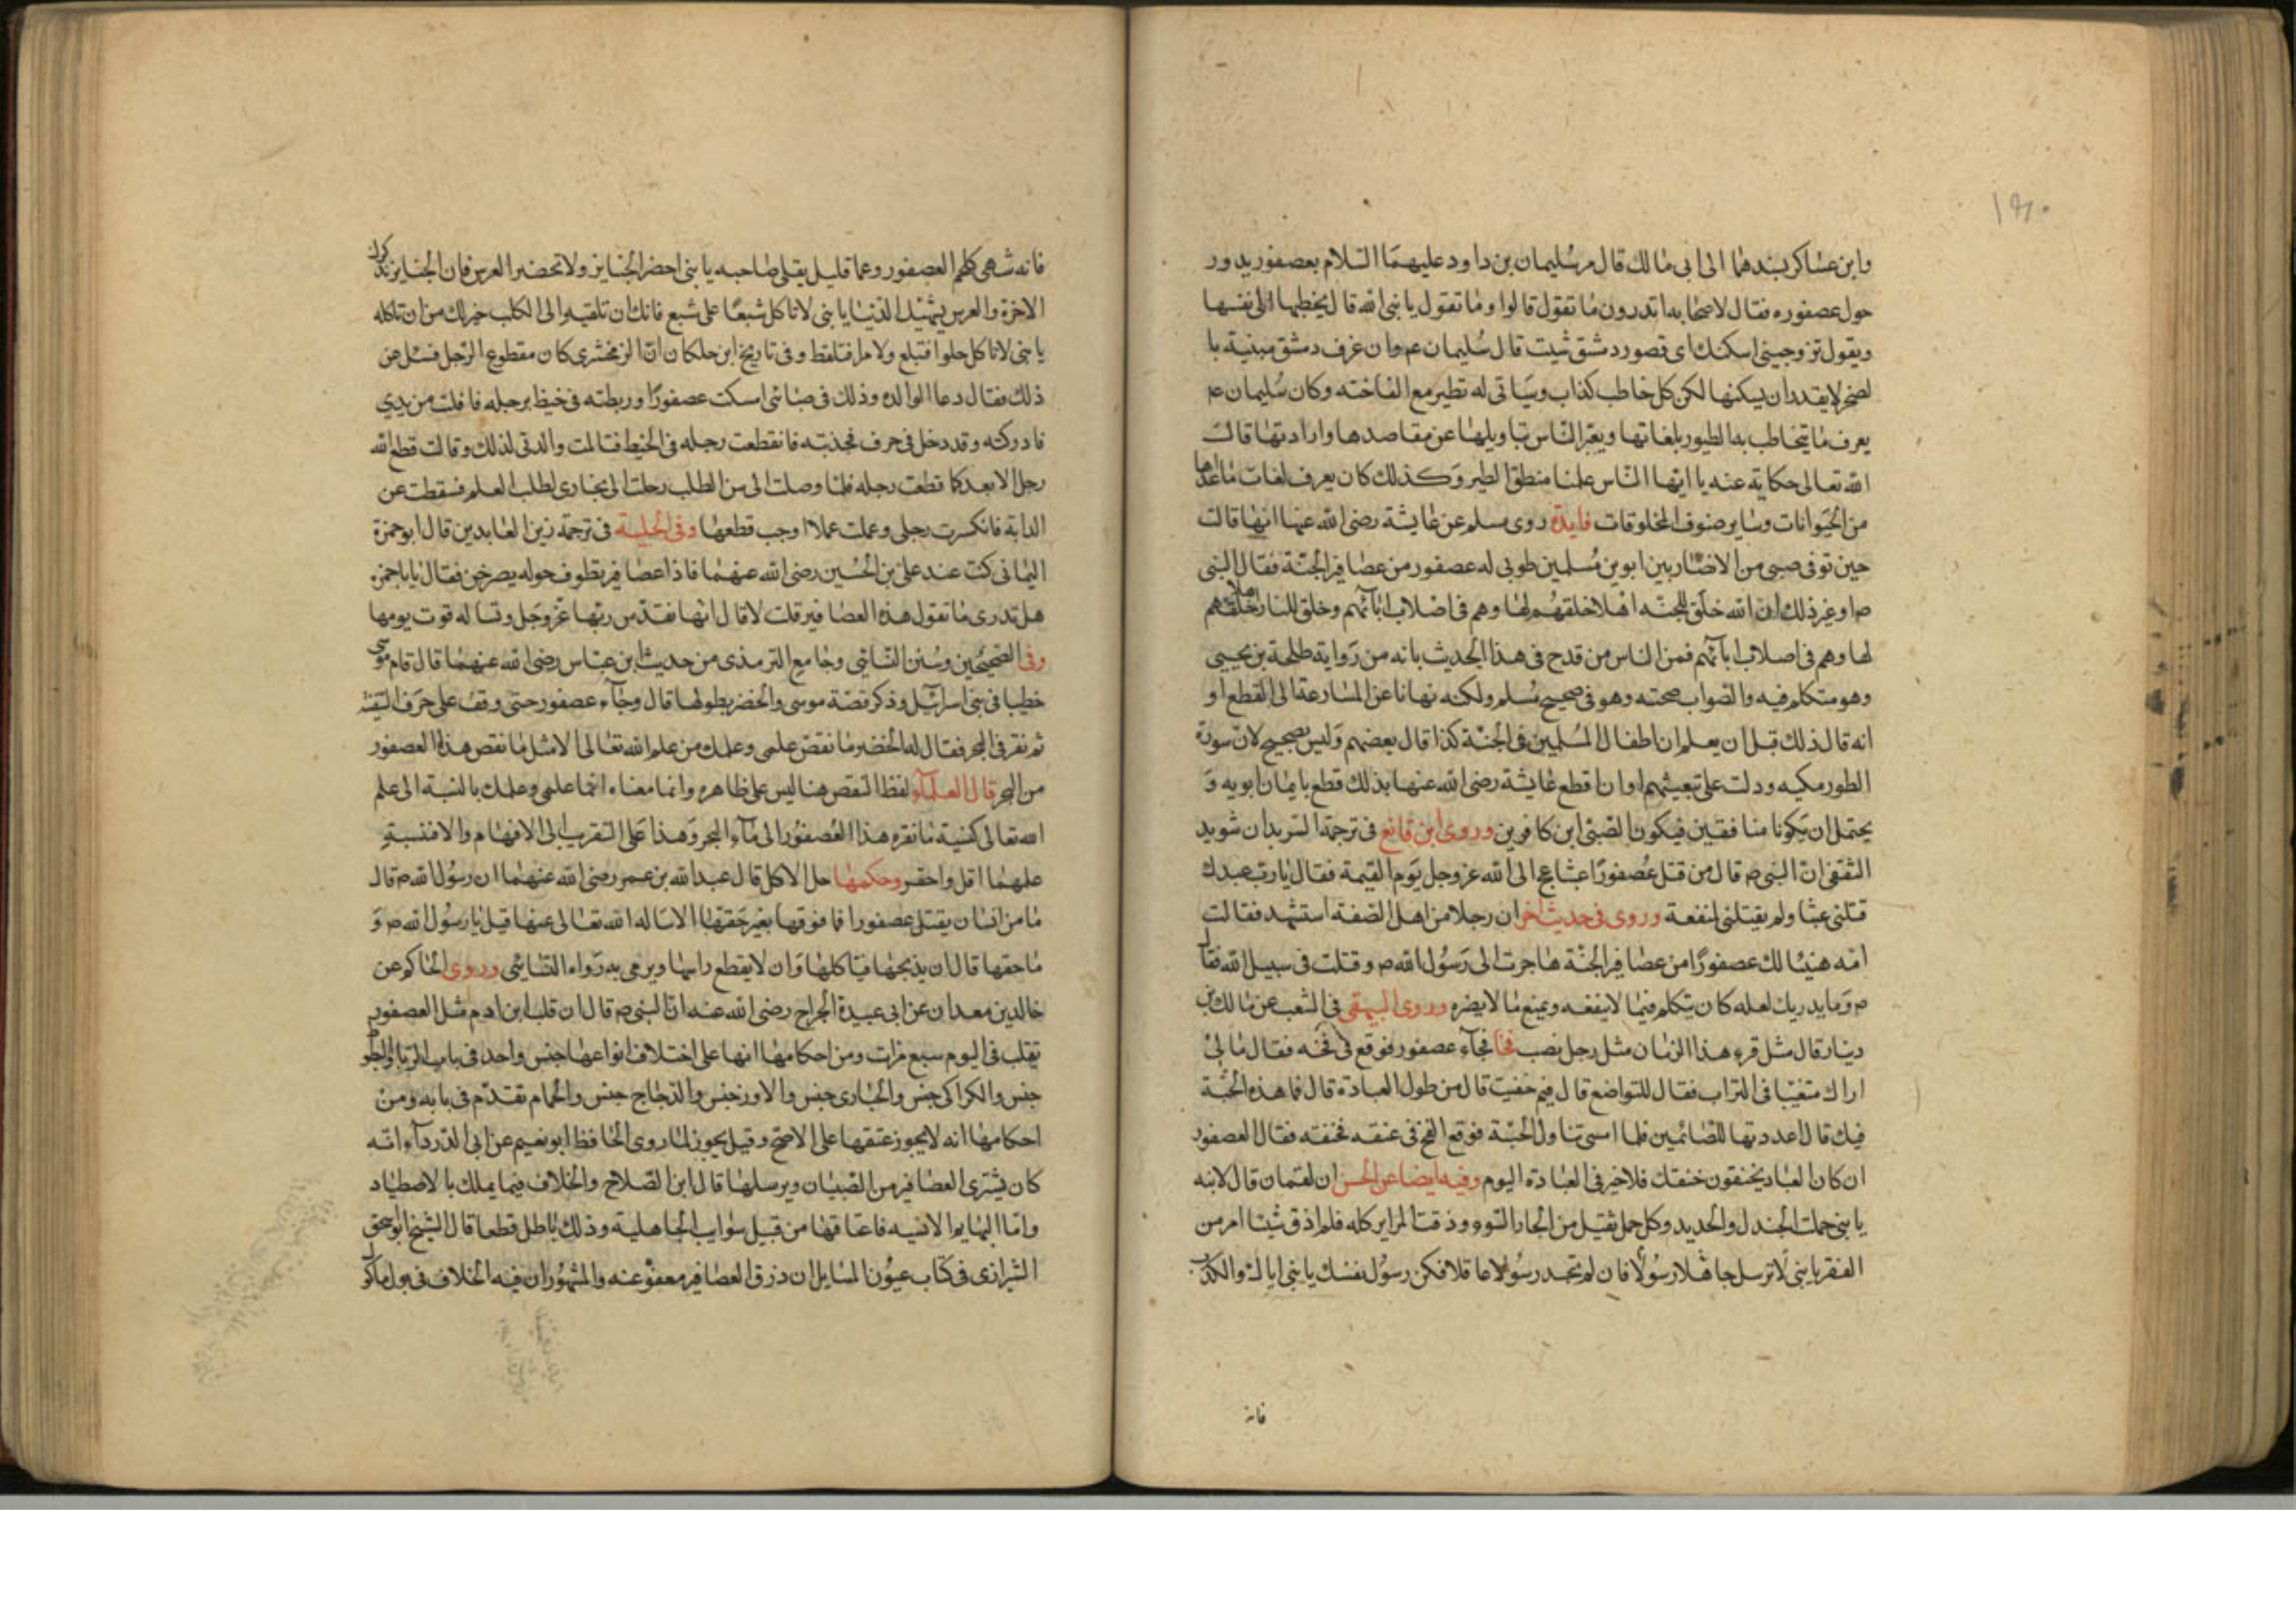 ١٩٠
وابن عساكر بسندهما الى ابى مالك قال مر سليمان بن داود عليهما السلام بعصفور يدور
حول عصفوره فقال لاصحابه اتدرون ما تقول قالوا وما تقول يا نبى الله قال يخطبها الى نفسها
ويقول تزوجينى اسكنك اى قصور دمشق شيت قال سليمان عم وان غرف دمشق مبنية با
لصخر لا يقدر ان يسكنها لكن كل خاطب كذاب وسياتى له نظير مع الفاخته وكان سليمان عم
يعرف ما يتخاطب به الطيور بلغاتها ويعبر الناس بتاويلها عن مقاصدها وارادتها قالت
الله تعالى حكاية عنه يا ايها الناس علمنا منطق الطير وكذلك كان يعرف لغات ما عداها
من الحيوانات وساير صنوف المخلوقات فايدة روى مسلم عن عايشة رضى الله عنها انها قالت
حين توفى صبى من الانصار بين ابوين مسلمين طوبى له عصفور من عصافير الجنة فقال النبى
ص او غير ذلك ان الله خلق للجنه اهلا خلقهم لها وهم فى اصلاب ابائهم وخلق للنار اهلا خلقهم
لها وهم فى اصلاب ابائهم فمن الناس من قدح فى هذا الحديث بانه من رواية طلحة بن يحيى
وهو متكلم فيه والصواب صحته وهو فى صحيح مسلم ولكنه نهانا عن المسارعة الى القطع او
انه قال ذلك قبل ان يعلم ان اطفال المسلمين فى الجنة كذا قال بعضهم وليس بصحيح لان سورة
الطور مكيه ودلت على تبعيتهم او ان اقطع عايشة رضى الله عنها بذلك قطع بايمان ابويه و
يحتمل ان يكونا منافقين فيكون الصبى ابن كافرين وروى ابن قانع فى ترجمة الشريد ان شويد
الثقفى ان النبى ص قال من قتل عصفورا عبثا عج الى الله عز وجل يوم القيمة فقال يا رب عبدك
قتلنى عبثا ولم يقتلنى لنفعة وروى فى حديث اخر ان رجلا من اهل الصفة استشهد فقالت
امه هنيئا لك عصفورا من عصافير الجنة هاجرت الى رسول الله ص وقتلت فى سبيل الله فقال
ص وما يدريك لعله كان يتكلم فيما لا ينفعه ويمنع ما لا يضره وروى البيهقى فى الشعب عن مالك بن
دينار قال مثل قرء هذا الزمان مثل رجل نصب فخا فجآء عصفور فوقع فى فخه فقال ما لى
اراك متغيبا فى التراب فقال للتواضع قال فيم حنيت قال من طول العبادة قال فما هذه الحبة
فيك قال اعددتها للصائمين فلما امسى تناول الحبة فوقع الفخ فى عنقه فخنقه فقال العصفور
ان كان العباد يخنقون خنقك فلا خير فى العبادة اليوم وفيه ايضا عن الحسن ان لقمان قال لابنه
يا بنى حملت الجندل والحديد وكل حمل ثقيل من الجار السوء وذقت المراير كله فلم اذق شيئا امر من
الفقر يا بنى لا ترسل جاهلا رسولا فان لم تجد رسولا عاقلا فكن رسول نفسك يا بنى اياك والكذب
فانه
فانه شهى كلحم العصفور وعما قليل يقلى صاحبه يا بنى احضر الجنايز ولا تحضر العرس فان الجنايز تذكرك
الاخرة والعرس يشهيك الدنيا يا بنى لا تاكل شبعا على شبع فانك ان تلقيه الى الكلب خير لك من ان تاكله
يا بنى لا تاكل حلوا فتبلع ولا مرا فتلفظ وفى تاريخ ابن خلكان ان الزمخشرى كان مقطوع الرجل فسئل عن
ذلك فقال دعا الوالده وذلك فى صبائى امسكت عصفورا وربطته فى خيط برجله فافلت من يدي
فادركته وقد دخل فى حرف فجذبته فانقطعت رجله فى الخيط فتالمت والدتى لذلك وقالت قطع الله
رجل الابعد كما قطعت رجله فلما وصلت الى سن الطلب رحلت الى بخارى لطلب العلم فسقطت عن
الدابة فانكسرت رجلى وعملت عملا اوجب قطعها وفى الحلية فى ترجمة زين العابدين قال ابو حمزة
اليمانى كنت عند على بن الحسين رضى الله عنهما فاذا عصافير يطوف حوله يصرخن فقال يا ابا حمزه
هل تدرى ما تقول هذه العصافير قلت لا قال انها تقدس ربها عز وجل وتساله قوت يومها
وفى الصحيحين وسنن النسائى وجامع الترمذى من حديث ابن عباس رضى الله عنهما قال قام موسى
خطيبا فى بنى اسرائيل وذكر قصة موسى والخضر بطولها قال وجآء عصفور حتى وقف على حرف السفينة
ثم نقر فى البحر فقال له الخضر ما نقص علمى وعلمك من علم الله تعالى الا مثل ما نقص هذا العصفور
من البحر قال العلمآء لفظ النقص هنا ليس على ظاهره وانما معناه انما علمى وعلمك بالنسبة الى علم
الله تعالى كنسبة ما نقره هذا العصفور الى مآء البحر وهذا على التقريب الى الافهام والا فنسبة
علمهما اقل واحقر وحكمها حل الاكل قال عبد الله بن عمر رضى الله عنهما ان رسول الله ص قال
ما من انسان يقتل عصفورا فما فوقها بغير حقها الا ساله الله تعالى عنها قيل يا رسول الله ص و
ما حقها قال ان يذبحها فياكلها وان لا يقطع راسها ويرمى به رواه النسائى وروى الحاكم عن
خالد بن معدان عن ابى عبيدة الجراح رضى الله عنه ان النبى ص قال ان قلب ابن ادم مثل العصفور
تقلب فى اليوم سبع مرات ومن احكامها انها على اختلاف انواعها جنس واحد فى باب الربا والبط
جنس والكراكى جنس والحبارى جنس والاوز جنس والدجاج جنس والحمام تقدم فى بابه ومن
احكامها انه لا يجوز عتقها على الاصح وقيل يجوز لما روى الحافظ ابو نعيم عن ابى الدردآء انه
كان يشترى العصافير من الصبيان ويرسلها قال ابن الصلاح والخلاف فيما يملك بالاصطياد
واما البهايم الانسيه فاعتاقها من قبيل سوايب الجاهلية وذلك باطل قطعا قال الشيخ ابو اسحق
الشيرازى فى كتاب عيون المسايل ان ذرق العصافير معفو عنه والمشهور ان فيه الخلاف فى بول ماكول